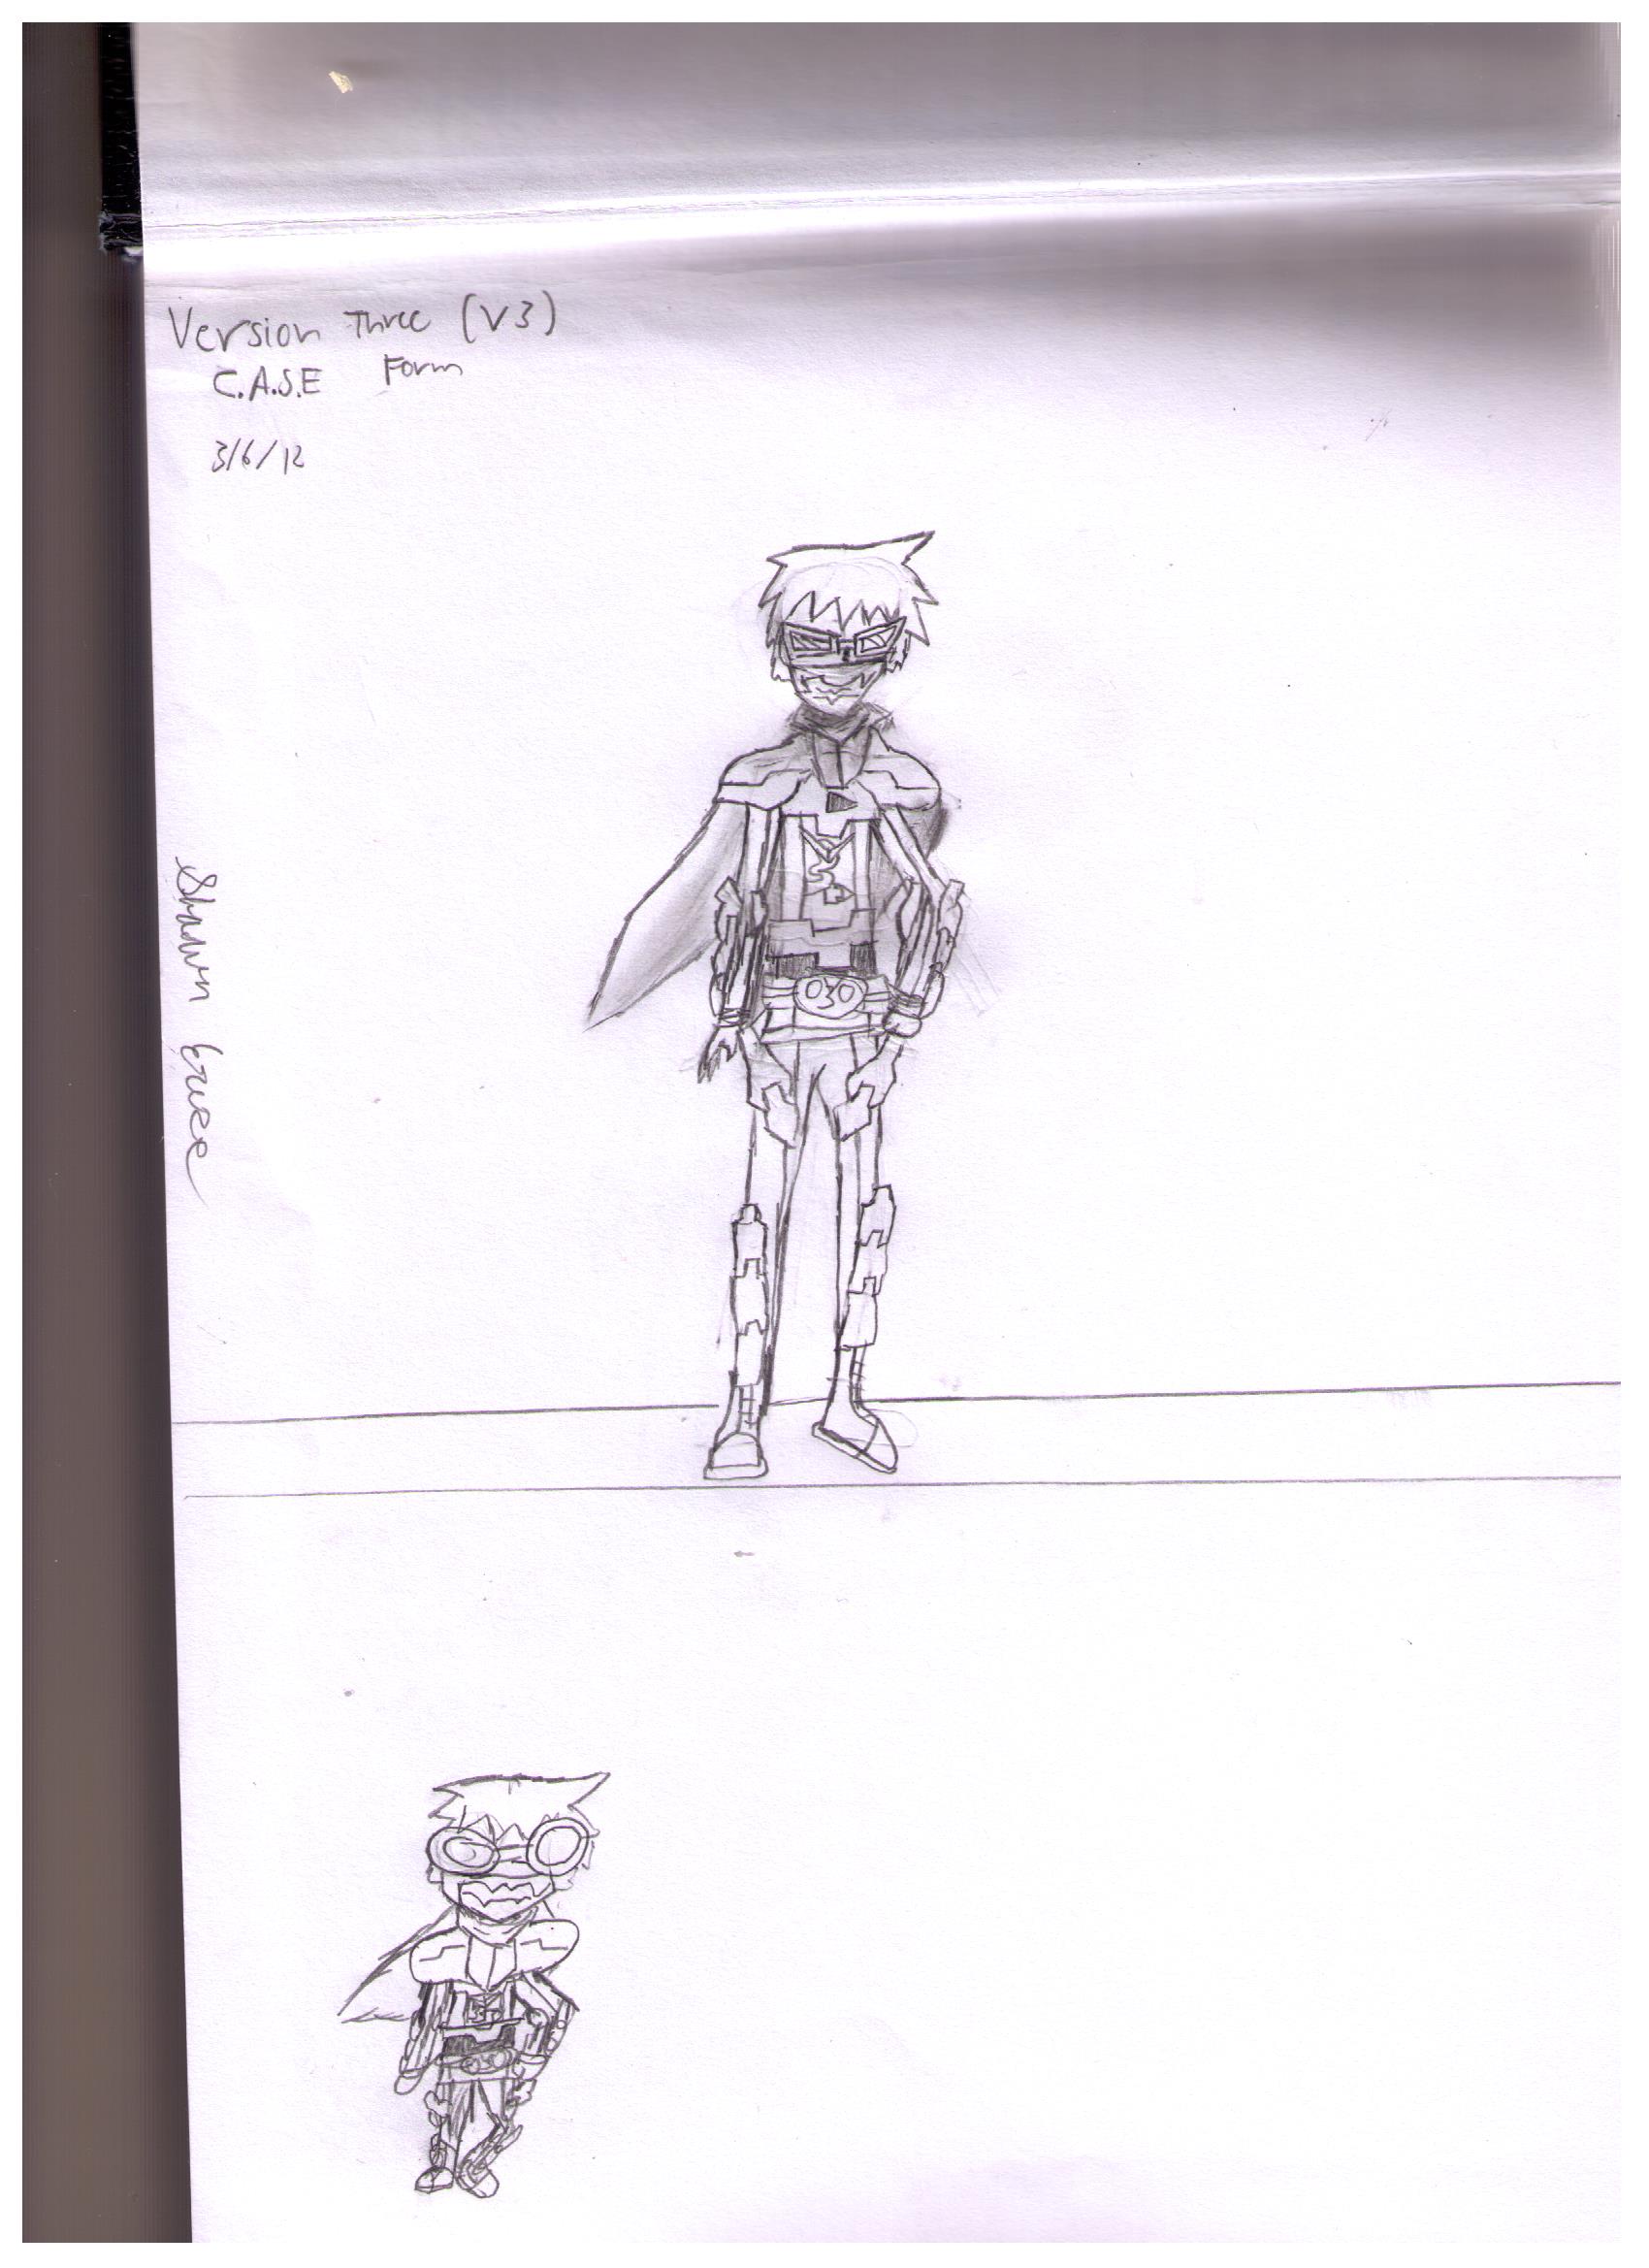 Version Three (V3)
C.A.S.E Form
3/6/12
Shawn
030